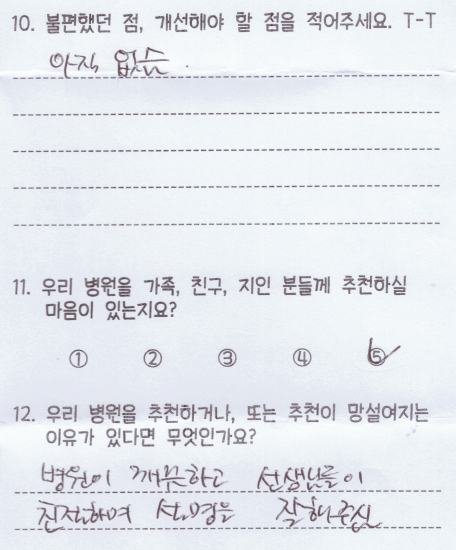 10. 불편했던 점, 개선해야 할 점을 적어주세요. T-T
아직 없슴.
11. 우리 병원을 가족, 친구, 지인 분들께 추천하실
마음이 있는지요?
① ② ③ ④ ⑤
12. 우리 병원을 추천하거나, 또는 추천이 망설여지는
이유가 있다면 무엇인가요?
병원이 깨끗하고 선생님들이
친절하며 설명을 잘해주신